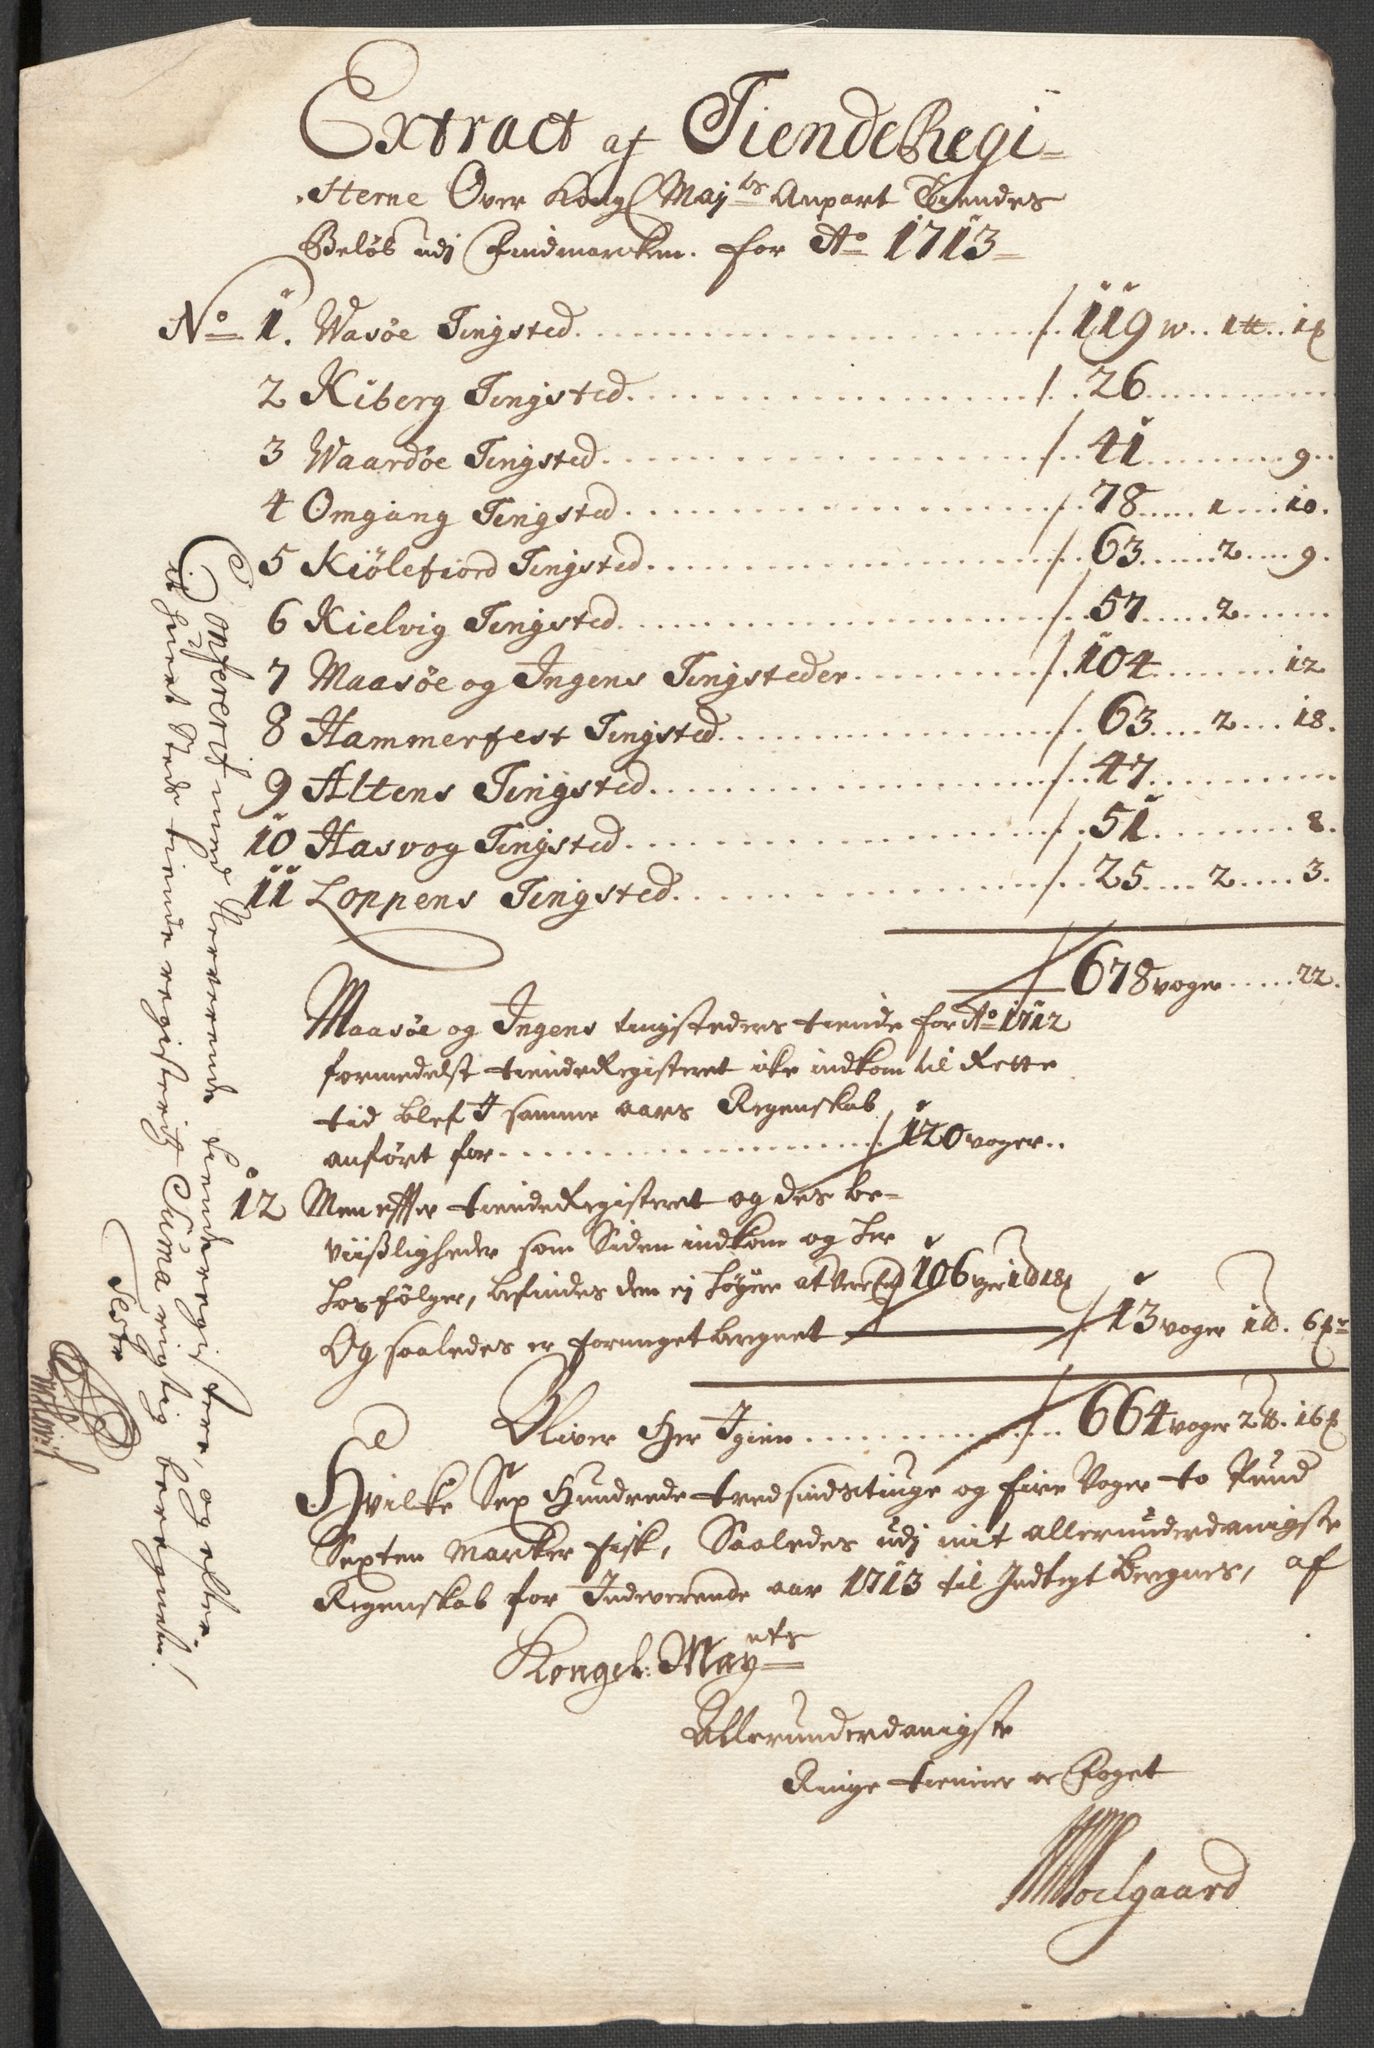 Extract af TiendeRegi-
sterne Over Kongl May ts Anpart Tiendes
Beløb udj Findmarcken. for Ao 1713
No 1. Wasøe Tingsted 119 w.. 1 tt.. 1
2 Kiberg Tingsted 26
3 Waardøe Tingsted 41 9
4 Omgang Tingsted 78 1 10.
5 Kiölefiord Tingsted 63 2 9.
6 Kielvig Tingsted 57 2
7 Maasöe og Ingens Tingsteder 104 12
8 Hammerfest Tingsted 63 2 18.
9 Altens Tingsted 47
10 Hasvog Tingsted 51 8.
11 Loppens Tingsted 25 2 3.
678 voger 22.
Maasöe og Ingens tingsteders tiende for Ao 1712
formedelst tiendeRegisteret icke indkom til Rette
tid blef I samme aars Regenskab
anført for 120 voger..
12 Men effter tiendeRegisteret og des be-
viißligheder som Siden indkom og her
hos følger, befindes dem ej høyere at være 106 1 18
Og saaledes er formeget beregnet 13 voger 1 6
Bliver her Igien 664 voger 2 16
Hvilke Sex Hundrede tredsindstiuge og fire Voger to Pund
Sexten Marcker fisk, Saaledes udj mit allerunderdanigste
Regenskab for Indeverende aar 1713 til Indtegt beregnes, af
Kongel: May ets
Allerunderdanigste
Ringe tienner oc Foget
Soelgaard
Confererit med Nerverende tiende registere, og efter
it huert Steds tiende registerits Suma rigtig beregnet.
Testr